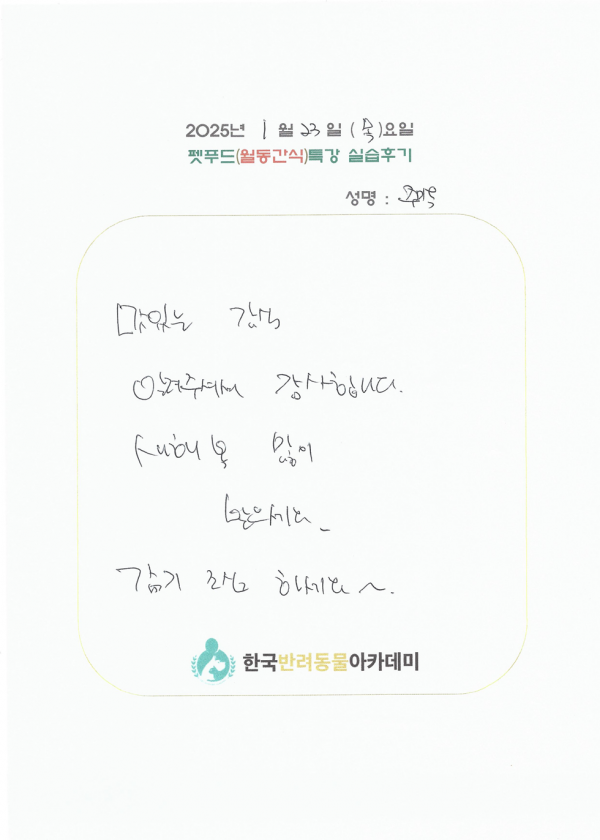 2025년 1월 23일 (목)요일
펫푸드(월동간식)특강 실습후기
성명 :
맛있는 간식
알려주셔서 감사합니다.
새해복 많이
받으세요_
감기 조심 하세요~.
한국반려동물아카데미